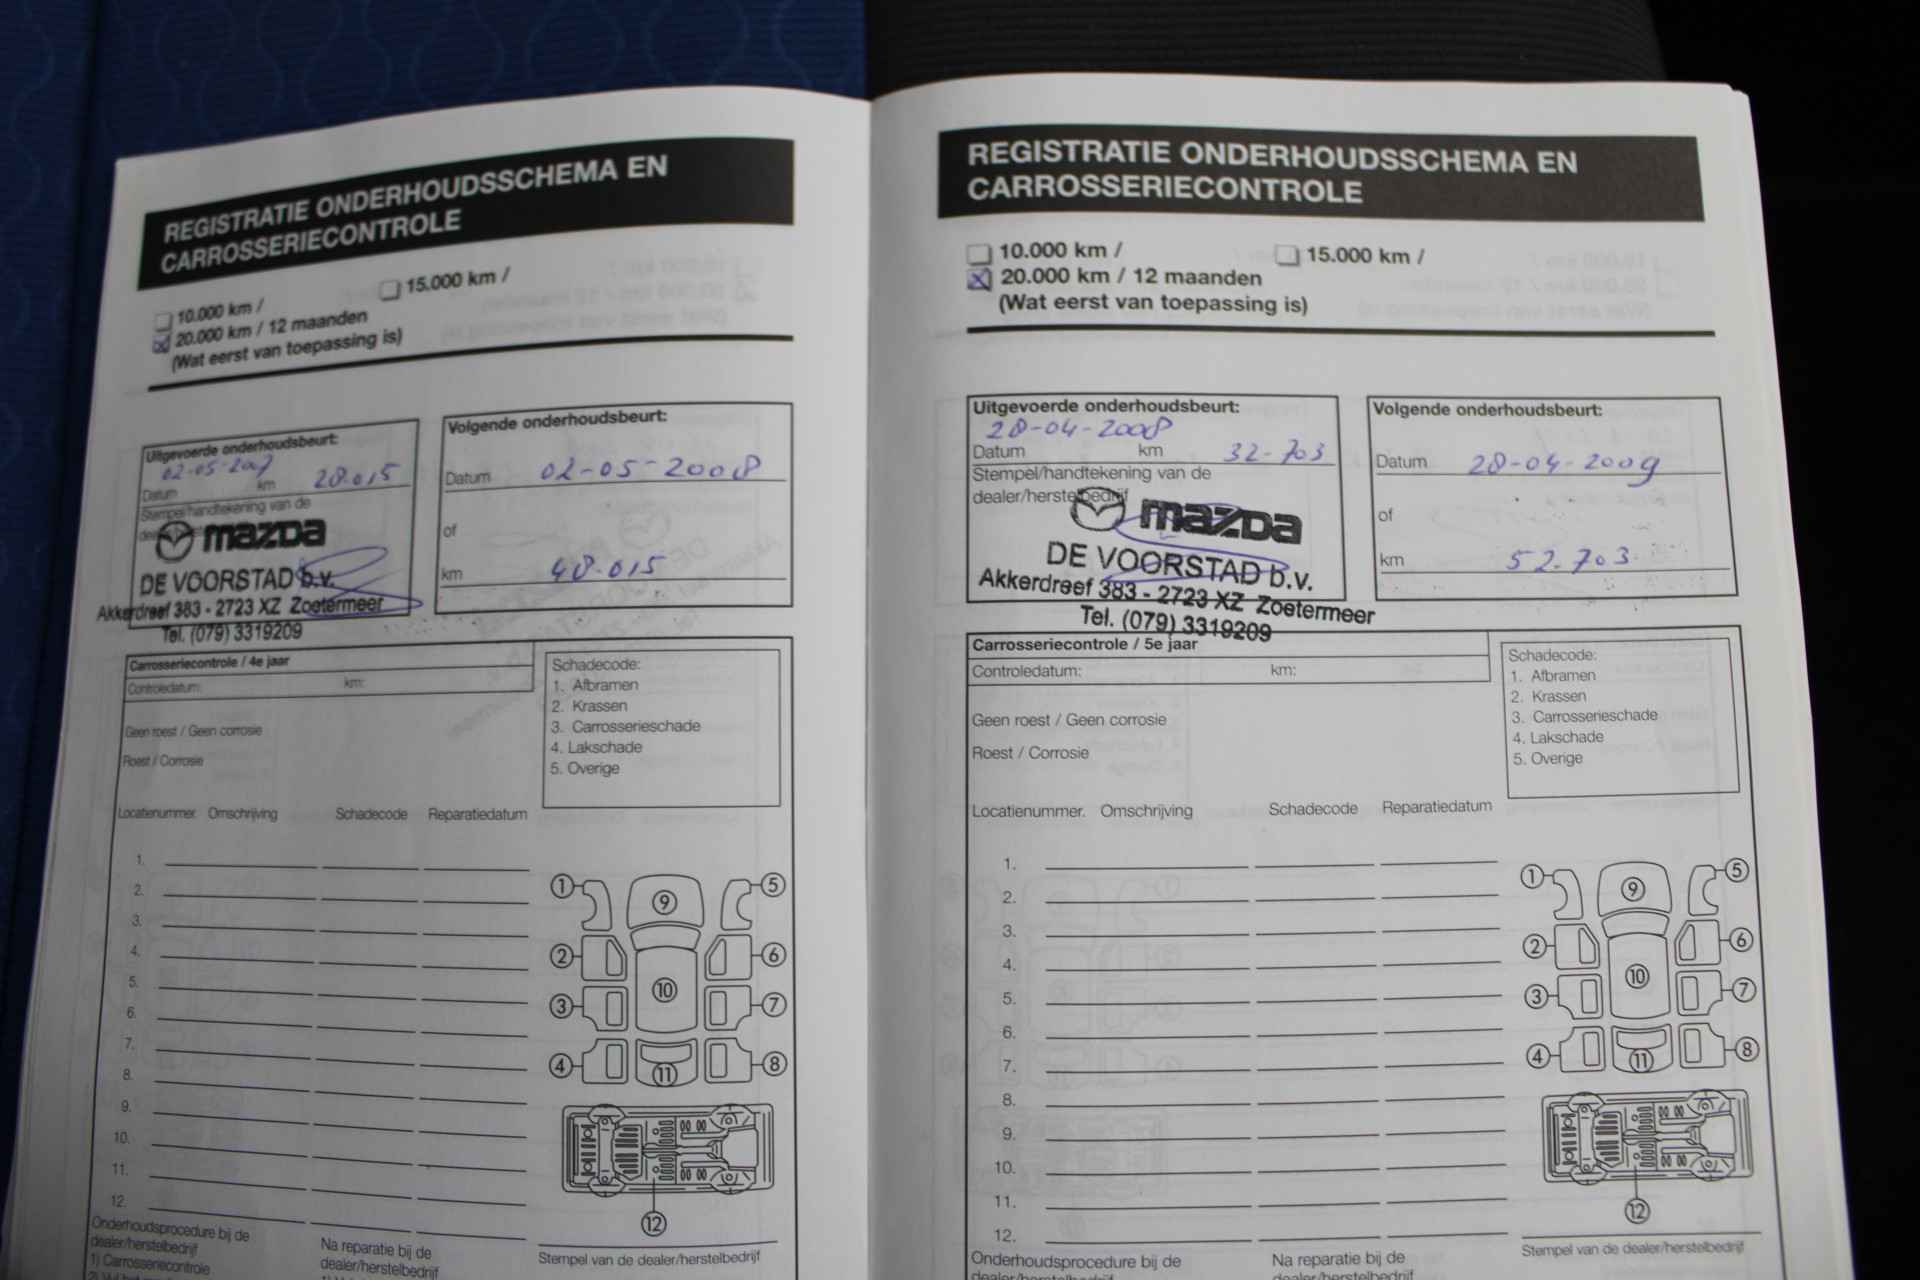 REGISTRATIE ONDERHOUDSSCHEMA EN
CARROSSERIECONTROLE
10.000 km /
15.000 km /
20.000 km / 12 maanden
(Wat eerst van toepassing is)
Uitgevoerde onderhoudsbeurt:
02-05-2007
Datum km 28.015
Stempel/handtekening van de
mazda
DE VOORSTAD b.v.
Akkerdreef 383 - 2723 XZ Zoetermeer
Tel. (079) 3319209
Volgende onderhoudsbeurt:
Datum 02-05-2008
of
km 48.015
Carrosseriecontrole / 4e jaar
Controledatum: km:
Geen roest / Geen corrosie
Roest / Corrosie
Schadecode:
1. Afbramen
2. Krassen
3. Carrosserieschade
4. Lakschade
5. Overige
Locatienummer. Omschrijving Schadecode Reparatiedatum
1.
2.
3.
4.
5.
6.
7.
8.
9.
10.
11.
12.
1 9 5
2 6
10
3 7
4 11 8
12
Onderhoudsprocedure bij de
dealer/herstelbedrijf
1) Carrosseriecontrole
Na reparatie bij de
dealer/herstelbedrijf
Stempel van de dealer/herstelbedrijf
REGISTRATIE ONDERHOUDSSCHEMA EN
CARROSSERIECONTROLE
10.000 km /
15.000 km /
20.000 km / 12 maanden
(Wat eerst van toepassing is)
Uitgevoerde onderhoudsbeurt:
28-04-2008
Datum km 32-703
Stempel/handtekening van de
dealer/herstelbedrijf
mazda
DE VOORSTAD b.v.
Akkerdreef 383 - 2723 XZ Zoetermeer
Tel. (079) 3319209
Volgende onderhoudsbeurt:
Datum 28-04-2009
of
km 52.703
Carrosseriecontrole / 5e jaar
Controledatum: km:
Geen roest / Geen corrosie
Roest / Corrosie
Schadecode:
1. Afbramen
2. Krassen
3. Carrosserieschade
4. Lakschade
5. Overige
Locatienummer. Omschrijving Schadecode Reparatiedatum
1.
2.
3.
4.
5.
6.
7.
8.
9.
10.
11.
12.
1 9 5
2 6
10
3 7
4 11 8
12
Onderhoudsprocedure bij de
dealer/herstelbedrijf
Na reparatie bij de
dealer/herstelbedrijf
Stempel van de dealer/herstelbedrijf